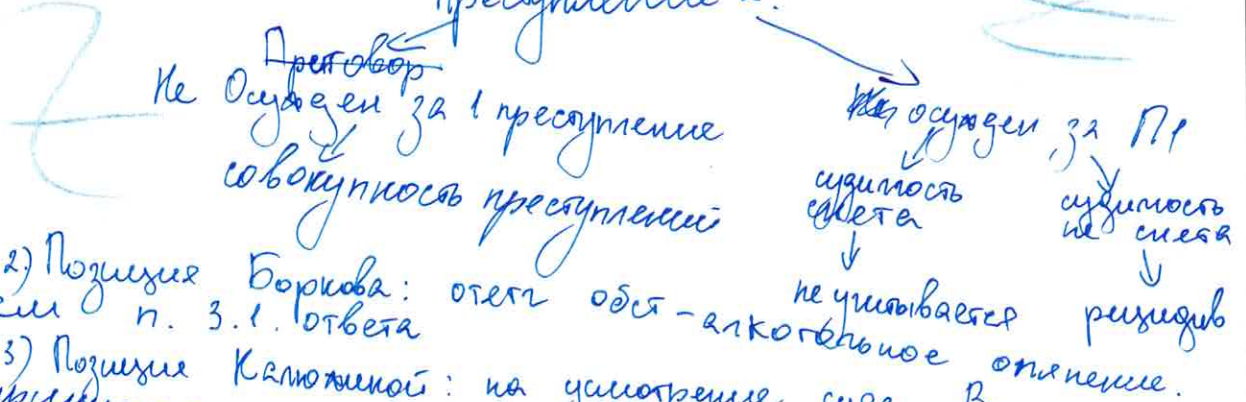 преступление
Приговор
Не Осужден за 1 преступление осужден за П1
совокупность преступлений судимость снята судимость не снята
не учитывается рецидив
2) Позиция Боркова: отягч обст - алкогольное опьянение.
см п. 3.1. ответа
3) Позиция Калюжиной: на усмотрение суда. В